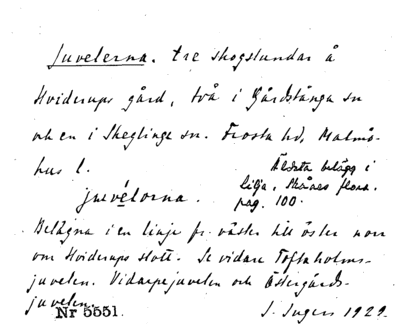 Juvelerna. tre skogslundar å
Hviderups gård, två i Gårdstånga sn
och en i Skeglinge sn. Frosta hd, Malmö-
hus l.
Äldsta belägg i
Lilja, Skånes flora.
pag. 100.
juvélorna.
Belägna i en linje fr. väster till öster norr
om Hviderups slott. Se vidare Toftaholms-
juvelen. Vidarpejuvelen och Östergårds-
juvelen.
Nr 5551.
J. Ingers 1929.